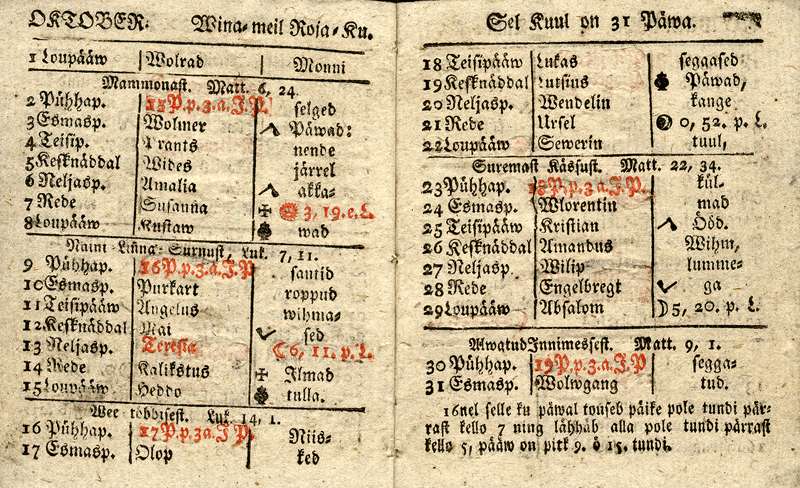 OKTOBER: Wina-meil Roja-Ku.
1 Loupääw Wolrad Monni
Mammonast. Matt. 6, 24.
2 Pühhap. 15 P. p. 3. a. J. P. selged
3 Esmasp. Wolmer Päwad:
4 Teisip. Prants nende
5 Kesknäddal Wides järrel
6 Neljasp. Amalia akka-
7 Rede Susanna 3, 19. e. L.
8 Loupääw Kustaw wad
Naini-Linna-Surnust, Luk. 7, 11.
9 Pühhap. 16 P. p. 3. a. J. P. santid
10 Esmasp. Purkart roppud
11 Teisipääw Angelus wihma-
12 Kesknäddal Mai sed
13 Neljasp. Teresia 6, 11. p. L.
14 Rede Kalikstus Ilmad
15 Loupääw Heddo tulla.
Wee többisest. Luk. 14, 1.
16 Pühhap. 17 P. p. 3. a. J. P. Niis-
17 Esmasp. Olop ked
Sel Kuul on 31 Päwa.
18 Teisipääw Lukas seggased
19 Kesknäddal Lutsius Päwad,
20 Neljasp. Wendelin kange
21 Rede Ursel 0, 52. p. L.
22 Loupääw Sewerin tuul,
Suremast Kässust. Matt. 22, 34.
23 Pühhap. 18 P. p. 3 a. J. P. kül-
24 Esmasp. Wlorentin mad
25 Teisipääw Kristian Ööd.
26 Kesknäddal Amandus Wihm,
27 Neljasp. Wilip lumme-
28 Rede Engelbregt ga
29 Loupääw Absalom 5, 20. p. L.
Alwatud Innimessest. Matt. 9, 1.
30 Pühhap. 19 P. p. 3. a. J. P segga-
31 Esmasp. Wolwgang tud.
16nel selle ku päwal touseb päike pole tundi pär-
rast kello 7 ning lähhäb alla pole tundi pärrast
kello 5, pääw on pitk 9. ö 15. tundi.